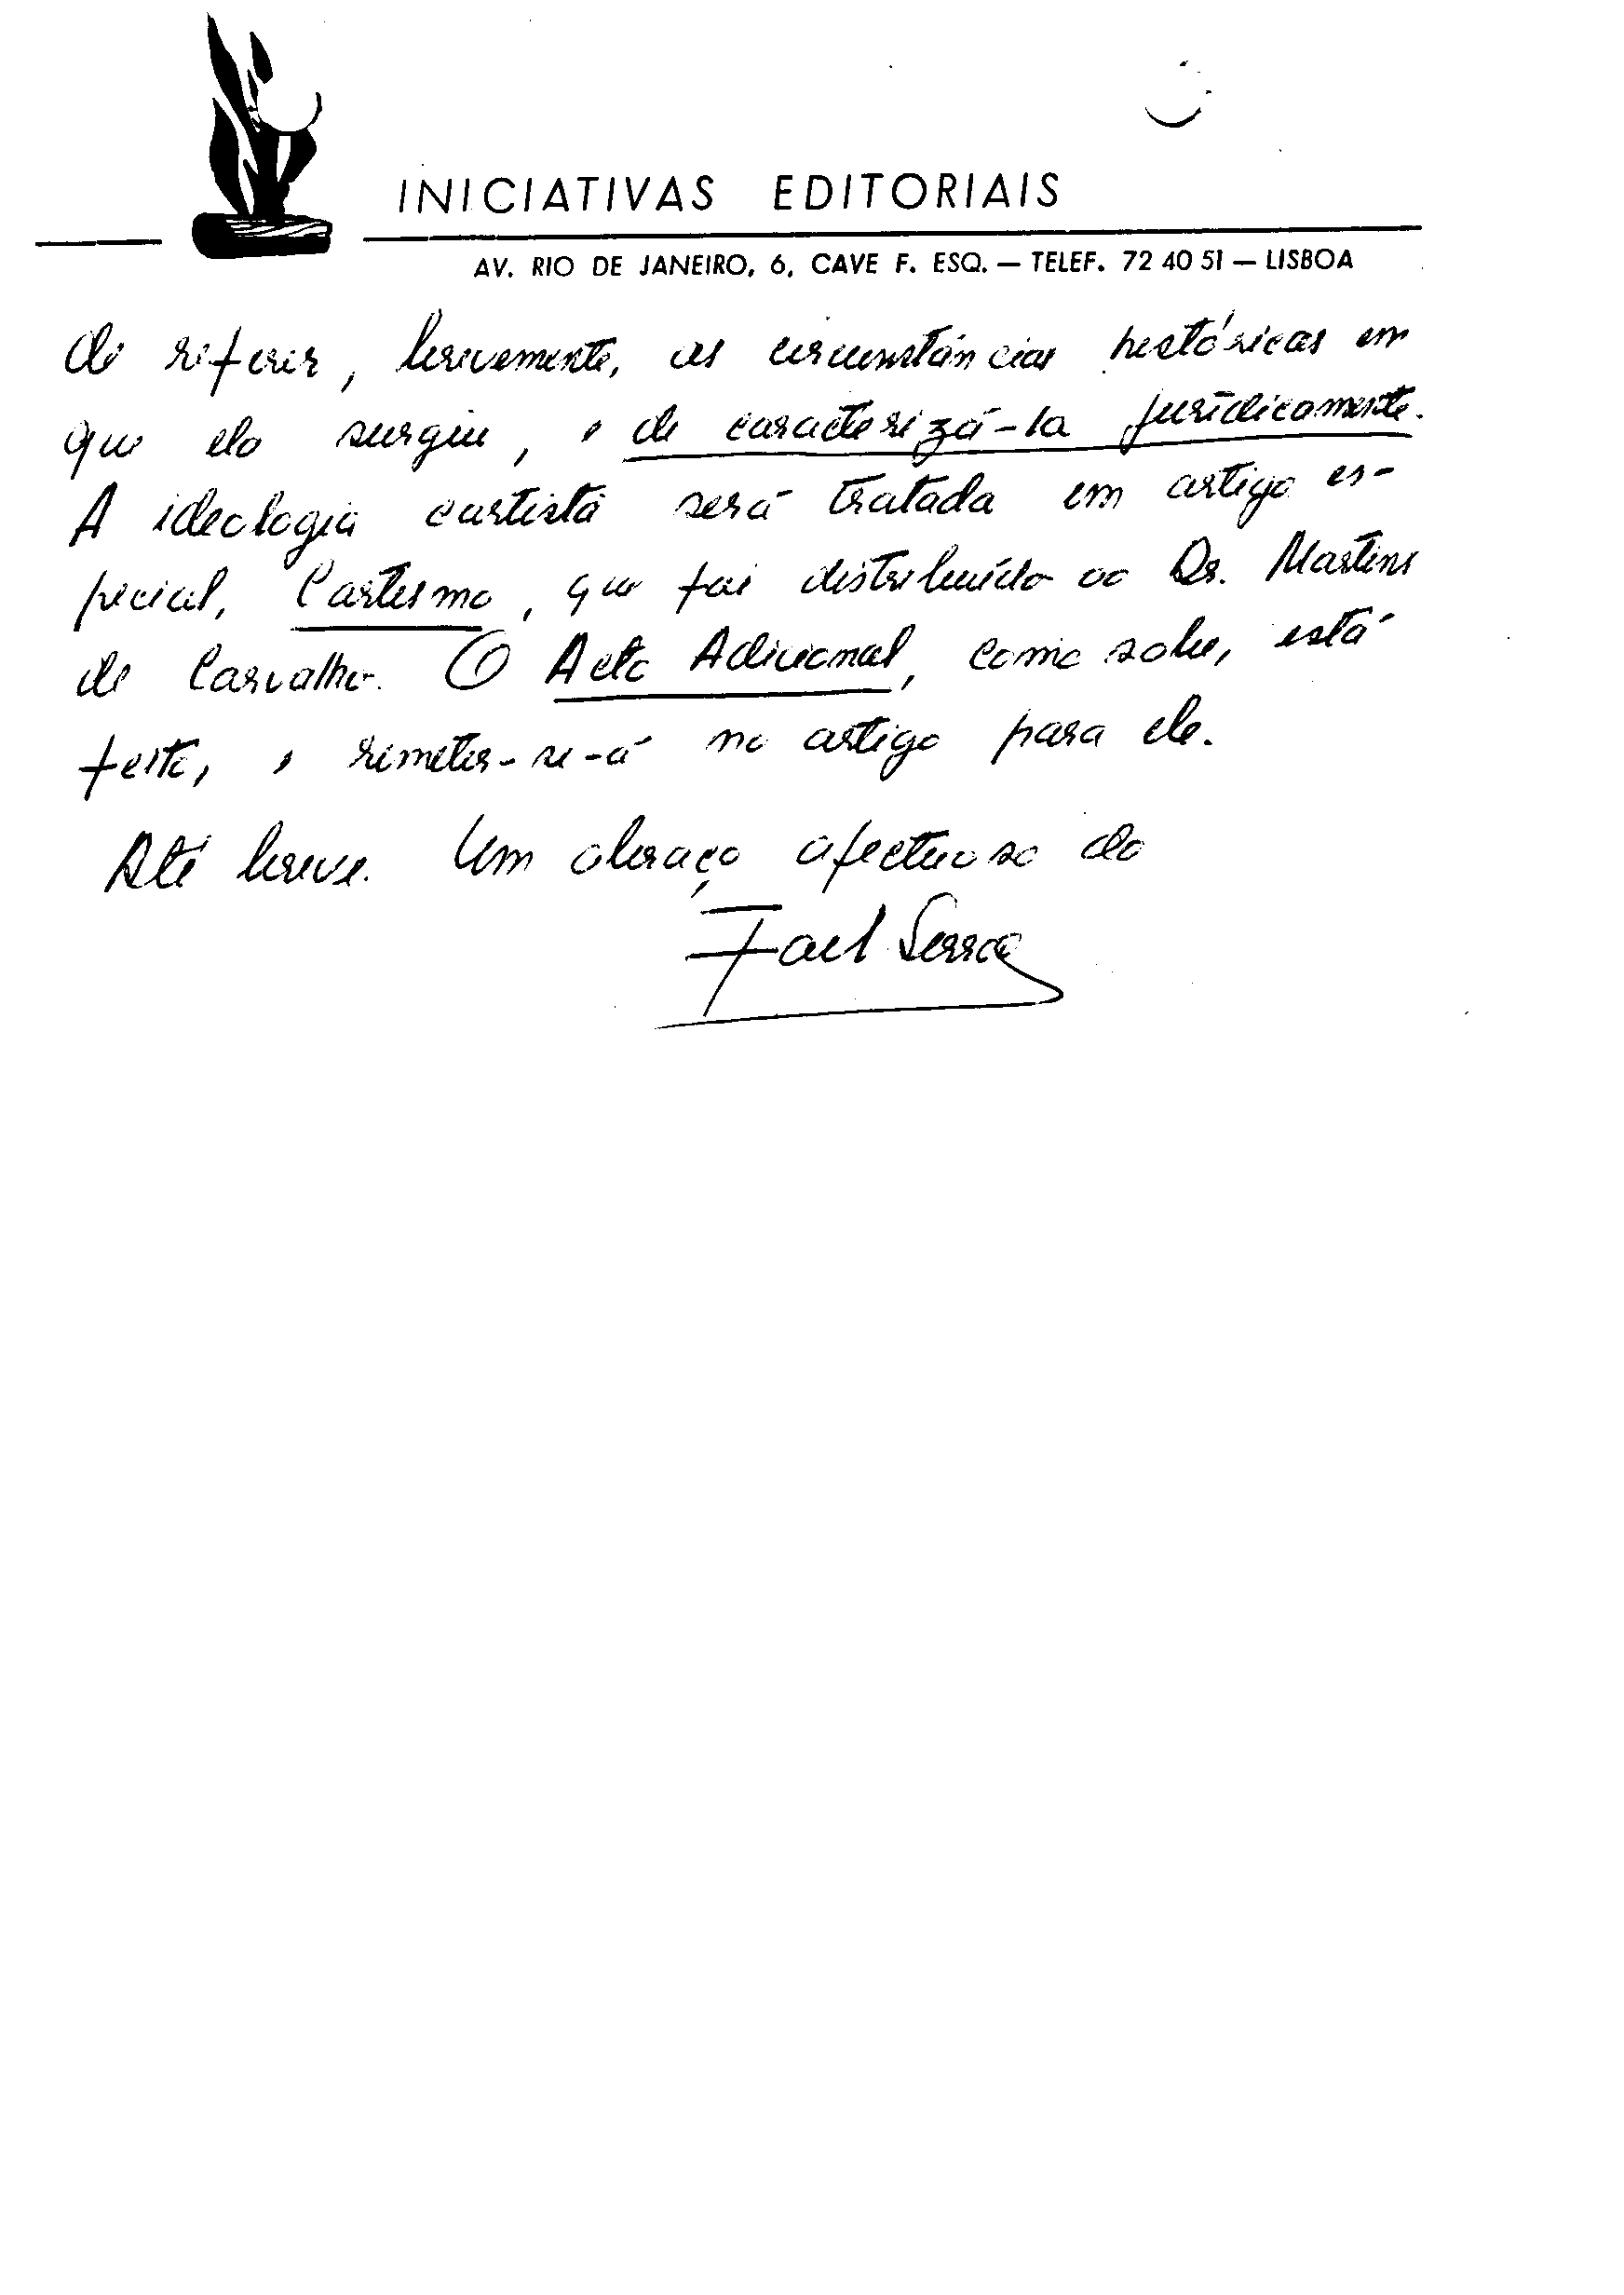 INICIATIVAS EDITORIAIS
AV. RIO DE JANEIRO, 6, CAVE F. ESQ. — TELEF. 72 40 51 — LISBOA
de referir, brevemente, as circunstâncias históricas em
que ela surgiu, e de caracterizá-la juridicamente.
A ideologia cartista será tratada em artigo es-
pecial, Cartismo, que foi distribuído ao Dr. Martins
de Carvalho. O Acto Adicional, como sabe, está
feito, e remeter-se-á no artigo para ele.
Até breve. Um abraço afectuoso do
Joel Serrão